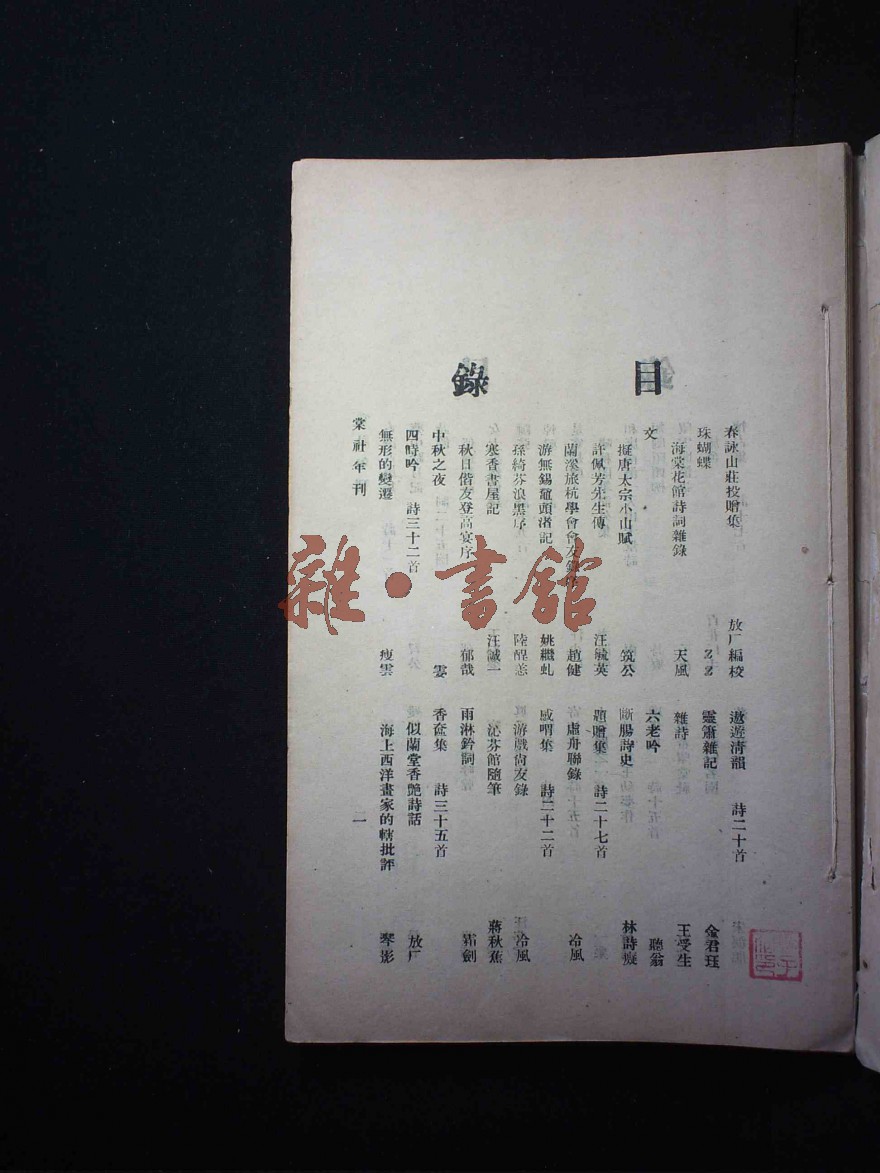 目錄
春詠山莊投贈集 放厂編校
珠蝴蝶 ZZ
海棠花館詩詞雜錄 天風
文
擬唐太宗小山賦 筑公
許佩芳先生傳 汪毓英
蘭溪旅杭學會會友錄 趙健
游無錫黿頭渚記 姚繼虬
孫綺芬浪墨序 陸酲
寒香書屋記 汪誠一
秋日偕友登高宴序 郁哉
中秋之夜 雯
四時吟 詩三十二首
無形的變遷 瘦雲
遨遊清韻 詩二十首
靈簫雜記 金君珏
雜詩 王受生
六老吟 聽翁
斷腸詩史 林詩癡
題贈集 詩二十七首
虛舟聯錄 冷風
感喟集 詩二十二首
游戲尙友錄 冷風
沁芬館隨筆 蔣秋蕉
雨淋鈴詞 霜劍
香奩集 詩三十五首
似蘭堂香艷詩話 放厂
海上西洋畫家的轄批評 琴影
棠社年刊 一
雜·書館